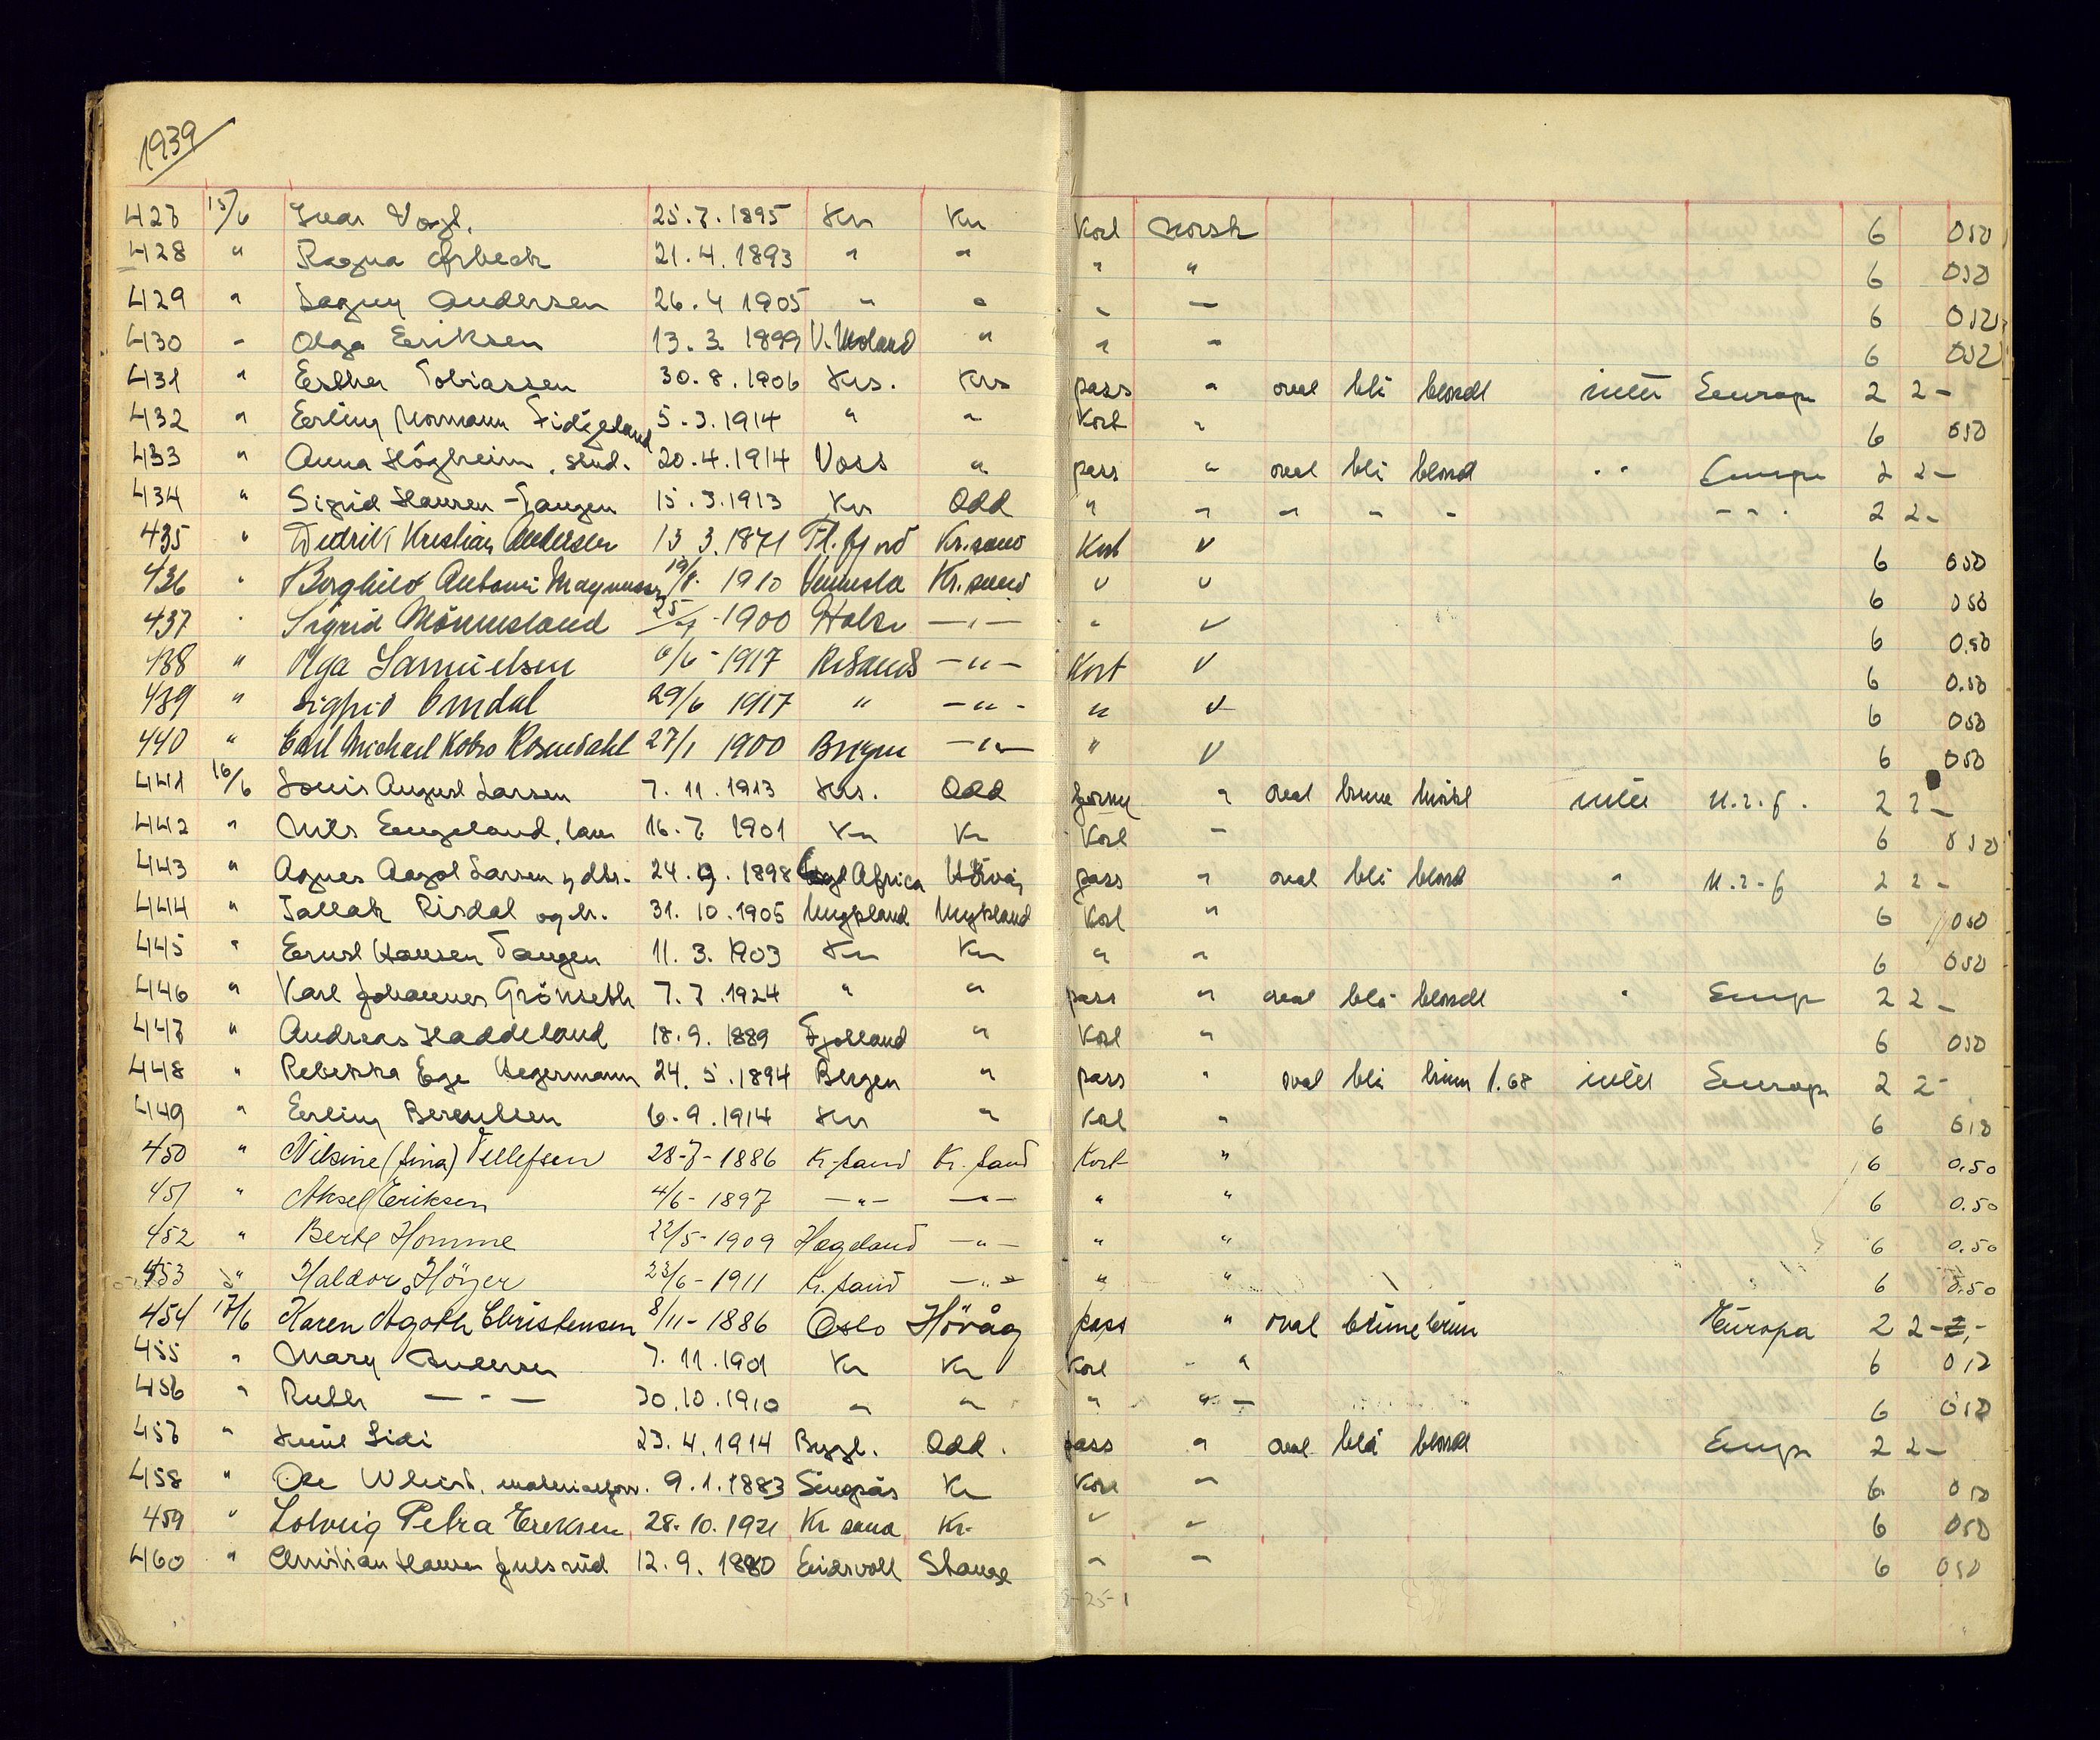 1939
427 15/6 Ivar Vogt. 25.7.1895 Kr Kr Kort norsk 6 050
428 " Ragna Ørbeck 21.4.1893 " " " " 6 050
429 " Dagny Andersen 26.4 1905 " " " — 6 050
430 " Olga Eriksen 13.3.1899 V.Moland " " " 6 050
431 " Esther Tobiassen 30.8.1906 Krs. Krs pass " oval blå blondt intet Europa 2 2-
432 " Erling Normann Fidjeland 5.3.1914 " " Kort " 6 050
433 " Anna Högheim, stud. 20.4.1914 Voss " pass " oval blå blond " Europa 2 2-
434 " Sigrid Hansen-Tangen 15.3.1913 Kr Odd " " " " " " 2 2-
435 " Didrik Kristian Andersen 13 3.1871 Kr.sand Kort v 6 050
436 " Borghild Antoni Magnussen 19/8. 1910 Vennesla Kr.sand v v 6 050
437 " Sigrid Mönnesland 1900 Halse —"— " v 6 0.50
438 " Olga Samuelsen 6/6-1917 KrSand —"— Kort v 6 0.50
439 " Sigfrid Omdal 29/6 1917 " —"— " v 6 050
440 " Carl Michael Kobro Rosendahl 27/1 1900 Bergen —"— " v 6 050
441 16/6 Louis August Larsen 7.11.1913 Krs. Odd forny " oval brune mörkt intet U.s.f. 2 2-
442 " Nils Engeland, 16.7 1901 Kr Kr Kort — 6 050
443 " Agnes Aagot Larsen 24.9.1898 Africa Hövåg pass " oval blå blond " U.s.f 2 2-
444 " Tallak Risdal 31.10.1905 Mykland Mykland Kort " 6 050
445 " Ernst Hansen Tangen 11.3.1903 Kr Kr " " 6 050
446 " Karl Johannes Grönseth 7.7.1924 " " pass " oval blå blondt " Europ 2 2-
447 " Andreas Haddeland 18.9.1889 Fjotland " Kort " 6 050
448 " Rebekka Ege Hegermann 24.5.1894 Bergen " pass " oval blå brun 1.68 intet Europa 2 2-
449 " Erling Berentsen 6.9.1914 Kr " Kort " 6 050
450 " Nilsine (Sina) Tellefsen 28-7-1886 Kr.sand Kr.sand Kort " 6 0.50
451 " Aksel Eriksen 4/6-1897 —"— —"— " " 6 0.50
452 " Berte Homme 22/5-1909 Hægeland —"— " " 6 0.50
453 " Haldor Höyer 23/6-1911 Kr.sand —"— " " 6 0.50
454 17/6 Karen Agoth Christensen 8/11-1886 Oslo Hövåg pass " oval brüne brün Europa 2 2-
455 " Mary Andersen 7.11.1901 Kr Kr Kort " 6 050
456 " Ruth —"— 30.10.1910 " " " " 6 050
457 " 23.4.1914 Odd. pass " oval blå blondt Europa 2 2-
458 " 9.1.1883 Singsås Kr Kort " 6 050
459 " Solveig Petra Eriksen 28.10.1921 Kr sand Kr. " " 6 050
460 " Christian Hansen Julsrud 12.9.1880 Eidsvoll Stange " " 6 050